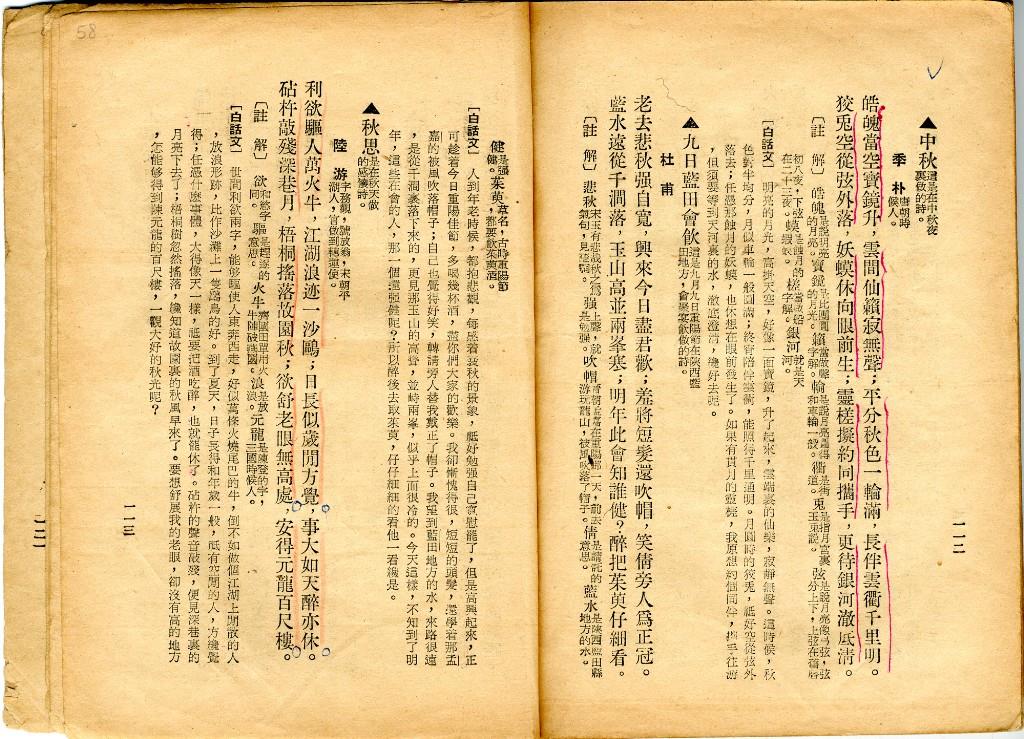 ▲中秋 這是在中秋夜裏做的詩。
季 朴 唐朝時候人。
皓魄當空寶鏡升，雲間仙籟寂無聲；平分秋色一輪滿，長伴雲衢千里明。
狡兎空從弦外落，妖蟆休向眼前生；靈槎擬約同攜手，更待銀河澈底清。
〔白話文〕 明亮的月光，高掛天空，好像一面寶鏡，升了起來，雲端裏的仙樂，寂靜無聲。這時候，秋
色對半均分，月似車輪一般圓滿；終宵陪伴雲衢，能照得千里通明。月圓時的狡兎，祗好空從弦外
落去；任憑那蝕月的妖蟆，也休想在眼前發生了。如果有貫月的靈槎，我原想約個同伴，攜手往游
，但須要等到天河裏的水，澈底澄清，纔好去呢。
▲九日藍田會飲 這是九月九日重陽節在陝西藍田地方，會聚宴飲做的詩。
杜 甫
老去悲秋强自寬，興來今日盡君歡；羞將短髮還吹帽，笑倩旁人爲正冠。
藍水遠從千澗落，玉山高並兩峯寒；明年此會知誰健？醉把茱萸仔細看。
一一二
健 是强健。茱萸 草名，古時重陽節，都要飲茱萸酒。
〔白話文〕 人到年老時候，都抱悲觀，每感着衰秋的景象，祗好勉强自己寬慰罷了，但是高興起來，正
可趁着今日重陽佳節，多喝幾杯酒，盡你們大家的歡樂。我卻慚愧得很，短短的頭髮，還學着那孟
嘉的被風吹落帽子；自己也覺得好笑，轉請旁人替我戴正了帽子。我望到藍田地方的水，來路很遠
，是從千澗裏落下來的，更見那玉山的高聳，並峙兩峯，似乎上面很冷的。今天這樣，不知到了明
年，這些在會的人，那一個還强健呢？所以醉後去取茱萸，仔仔細細的看他一看纔是。
▲秋思 是在秋天做的感懷詩。
陸 游 字務觀，號放翁，宋朝平湖人，官做到轉運使。
利欲驅人萬火牛，江湖浪迹一沙鷗；日長似歲閒方覺，事大如天醉亦休。
砧杵敲殘深巷月，梧桐搖落故園秋；欲舒老眼無高處，安得元龍百尺樓。
〔註 解〕 欲 和慾字同。驅 是趕逐的意思。火牛 齊國田單用火牛陣破燕國。浪 是放浪。元龍 是陳登的字，三國時候人。
〔白話文〕 世間利欲兩字，能够驅使人東奔西走，好似萬條火燒尾巴的牛，倒不如做個江湖上閒散的人
，放浪形跡，比作沙灘上一隻鷗鳥的好。到了夏天，日子長得和年歲一般，祗有空閒的人，方纔覺
得；任憑什麼事體，大得像天一樣，祗要把酒吃醉，也就罷休了。砧杵的聲音敲殘，便見深巷裏的
月亮下去了；梧桐樹忽然搖落，纔知道故園裏的秋風早來了。要想舒展我的老眼，卻沒有高的地方
，怎能够得到陳元龍的百尺樓，一觀大好的秋光呢？
一一三
58